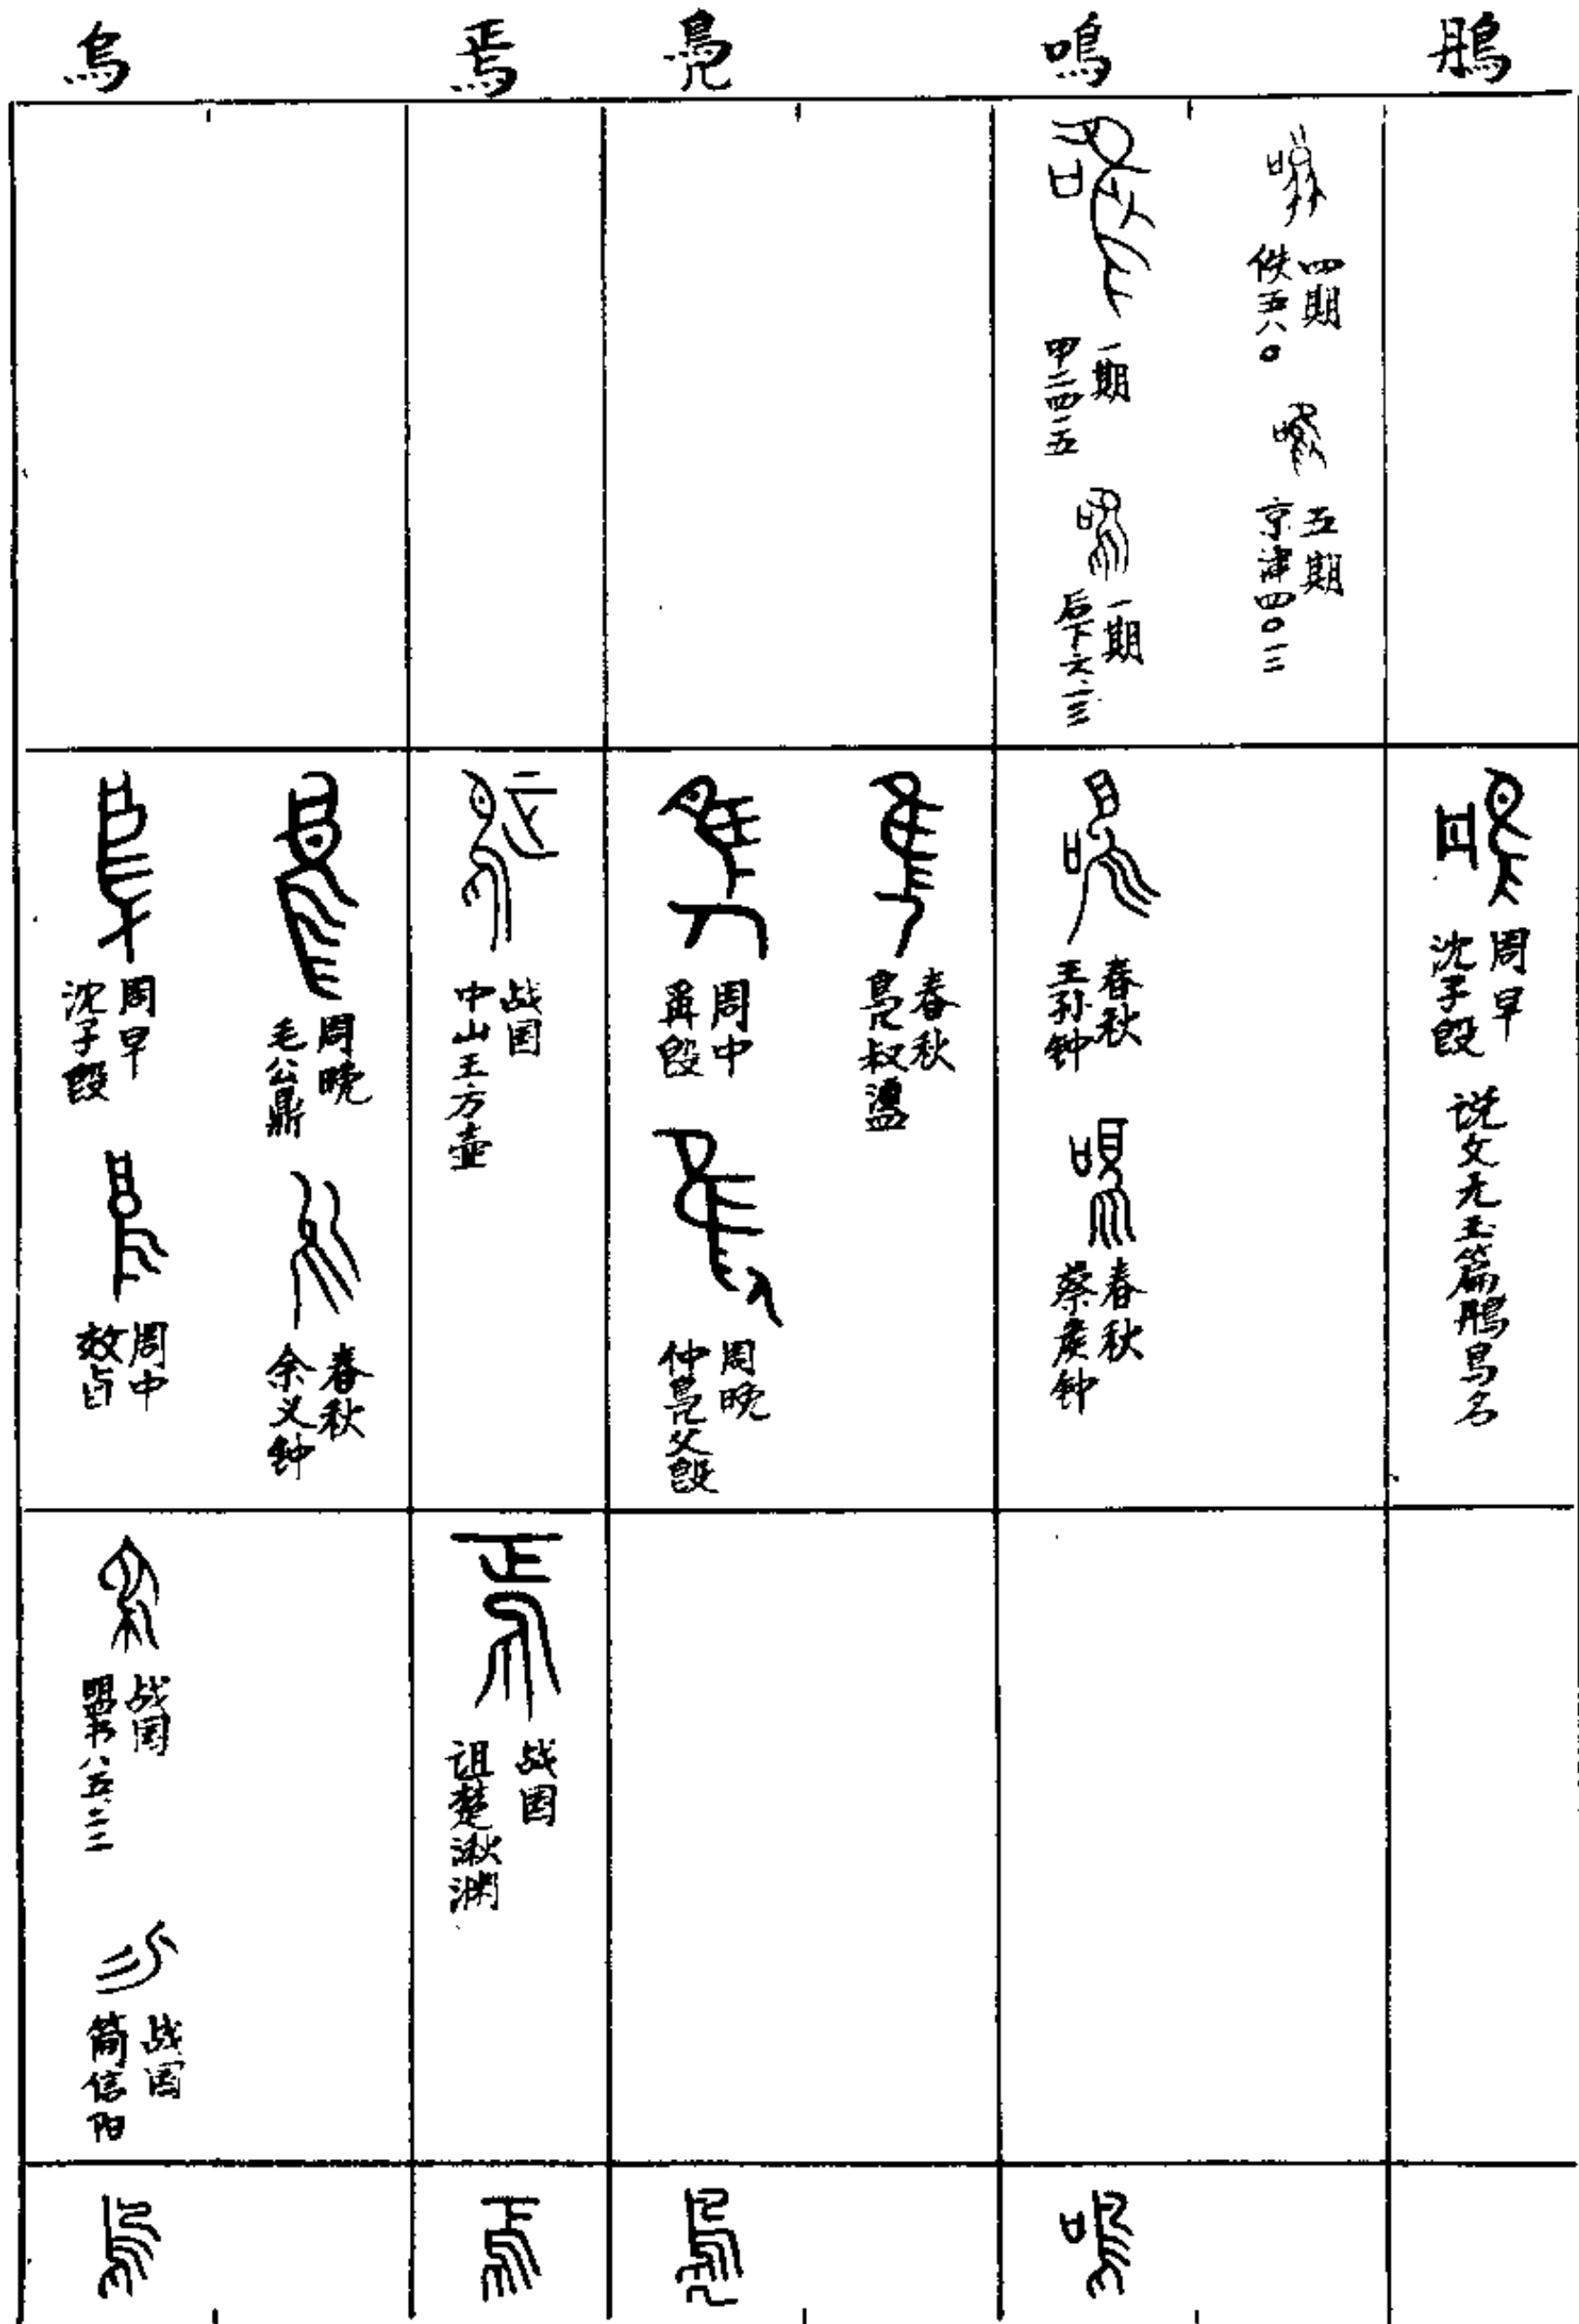 鳥 焉 鳧 鳴 鵃
四期
佚五八〇
五期
京津四〇三二
一期
甲二四一五
一期
后下六·一三
周早
沈子𣪘
说文无玉篇鵃鳥名
春秋
王孙钟
春秋
蔡侯钟
春秋
鳧叔盨
周中
禹𣪘
周晚
仲鳧父𣪘
战国
中山王方壶
周晚
毛公鼎
春秋
余义钟
周早
沈子𣪘
周中
效卣
战国
诅楚湫渊
战国
盟书八五·二二
战国
简信阳